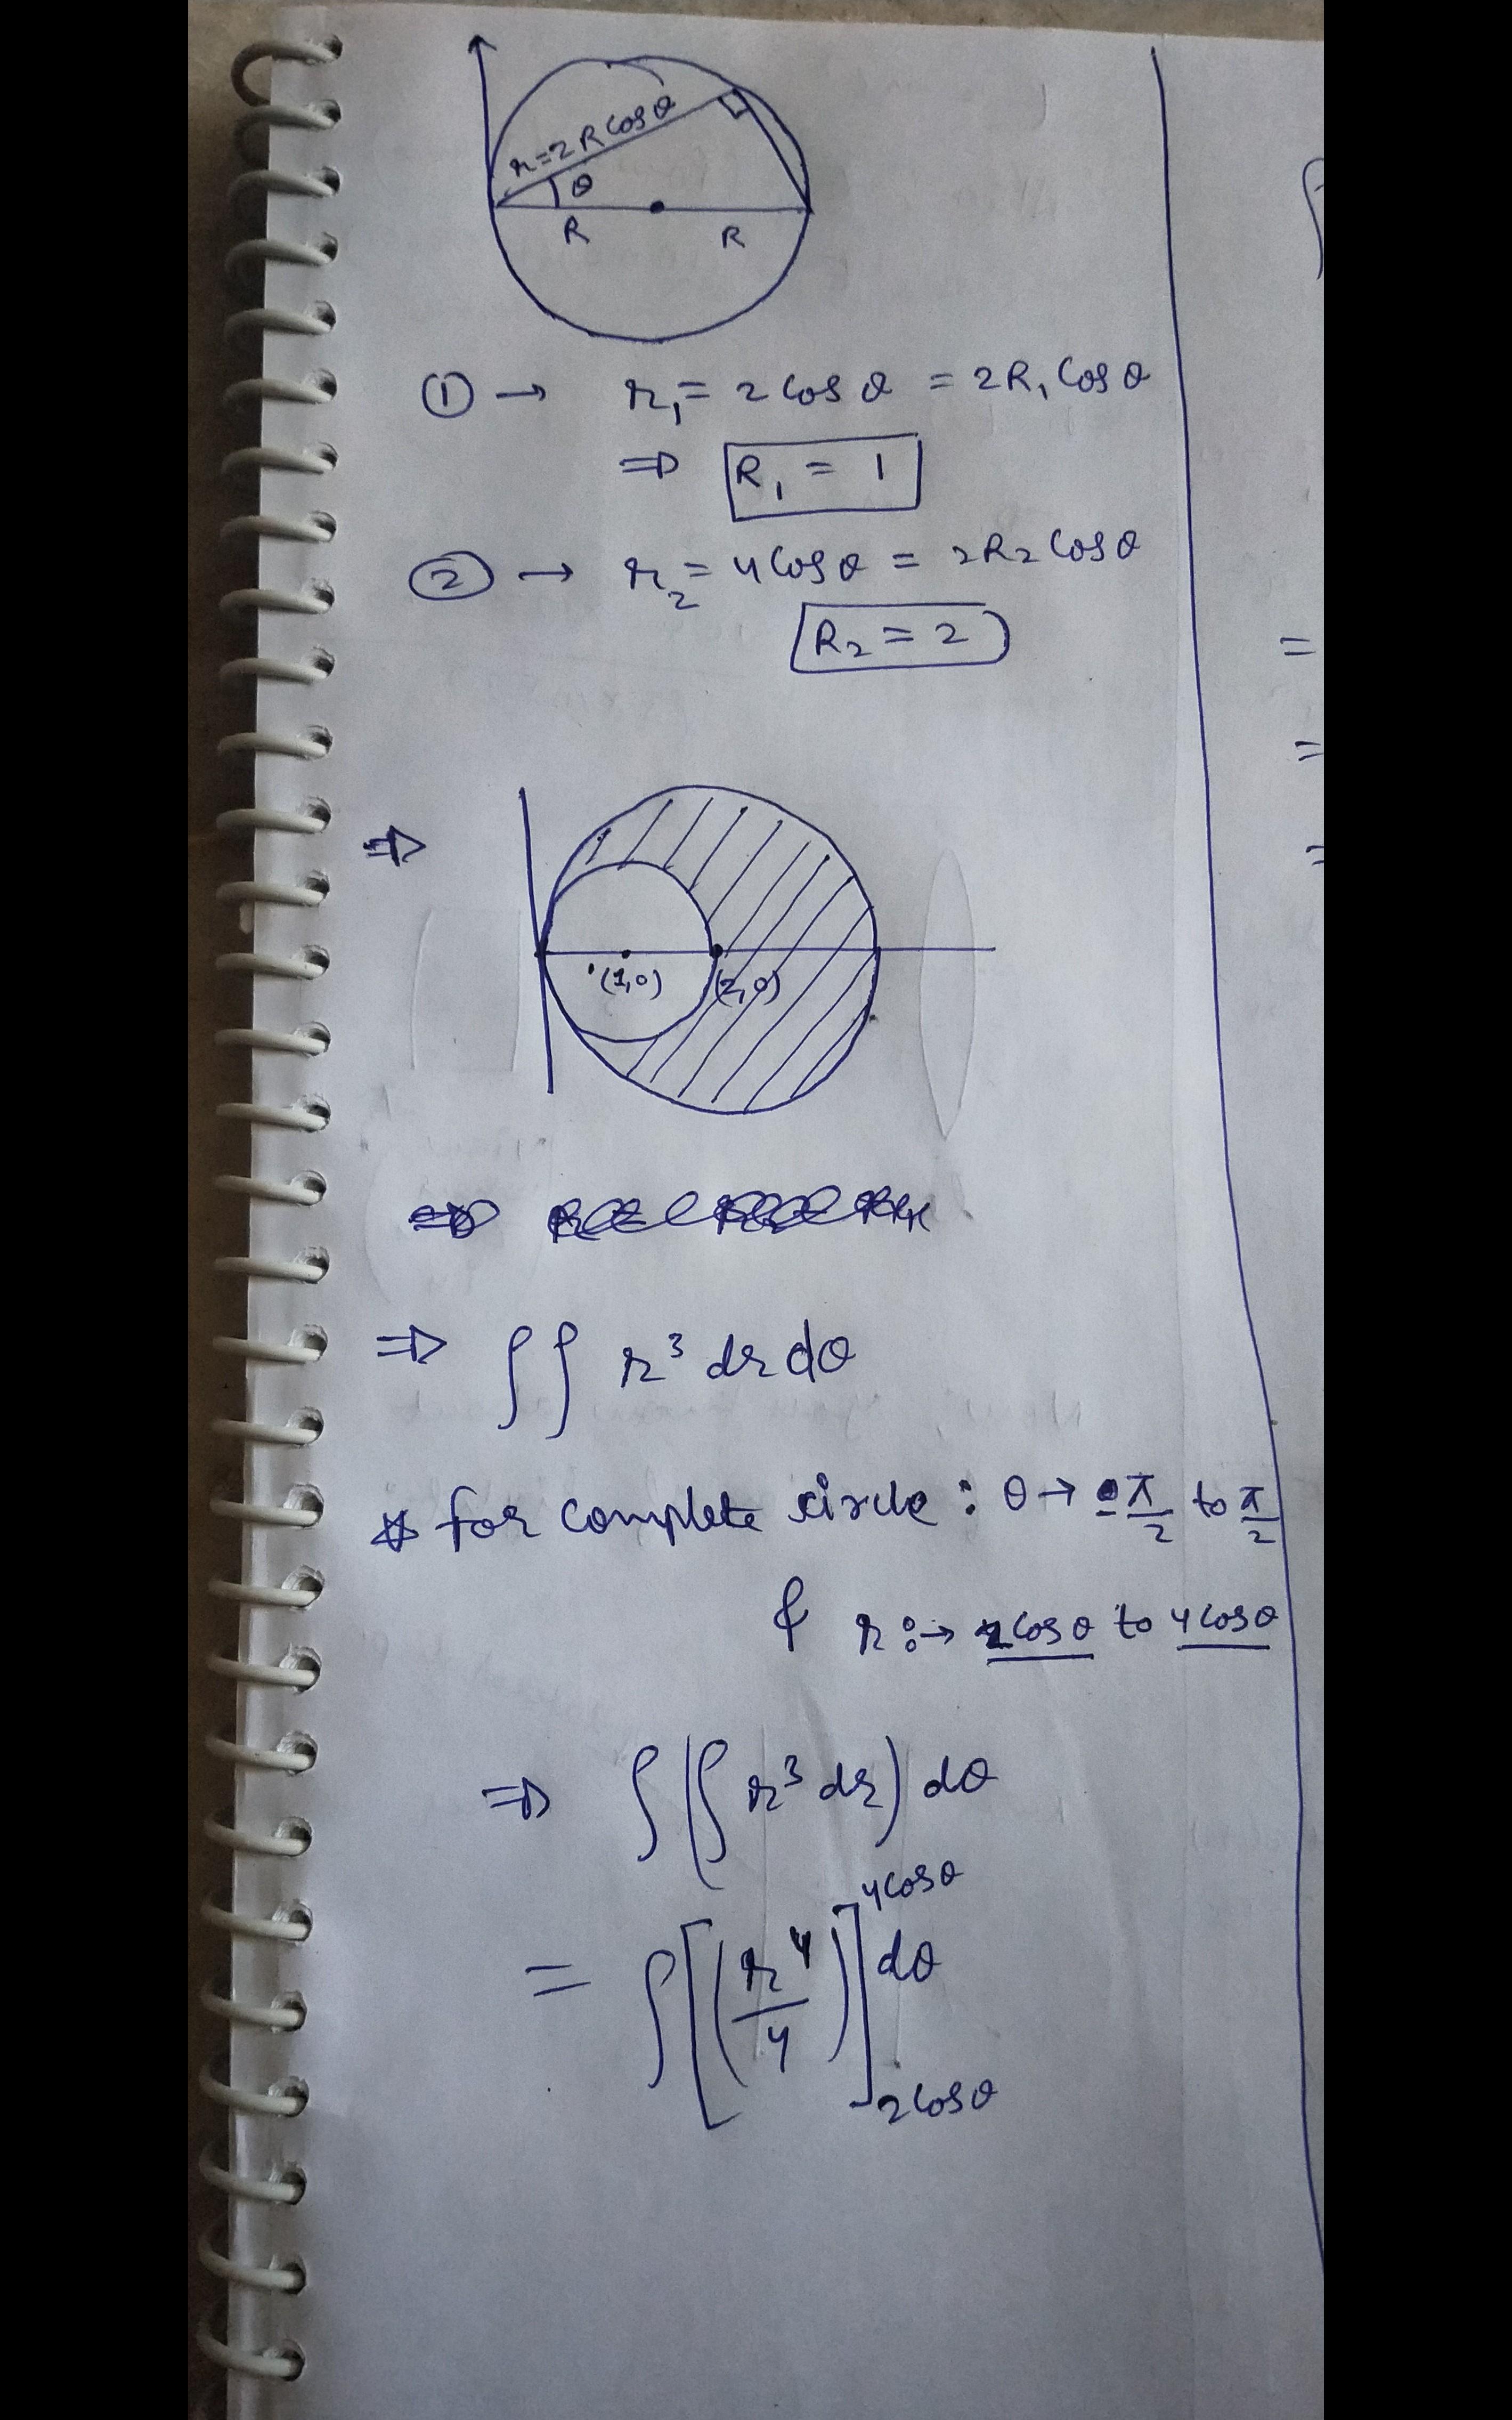 r=2R cosθ
θ
R R
① → r₁ = 2 cos θ = 2R₁ cos θ
⇒ R₁ = 1
② → r₂ = 4 cos θ = 2R₂ cos θ
R₂ = 2
⇒
(1,0) (2,0)
⇒ ∫∫ r³ dr dθ
* for complete circle : θ → -π/2 to π/2
& r :→ 2cos θ to 4cos θ
⇒ ∫(∫ r³ dr) dθ
= ∫[(r⁴/4)]_{2cos θ}^{4cos θ} dθ
∫
=
=
=